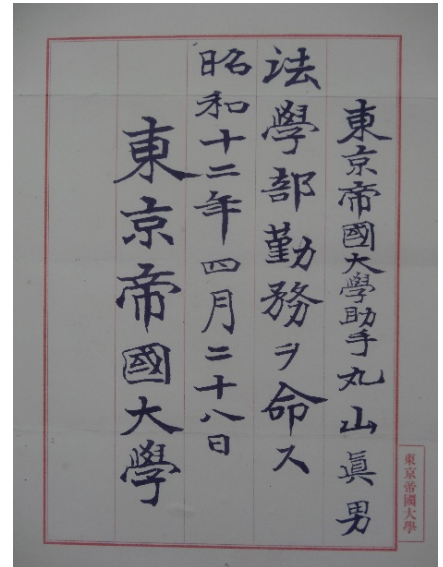 東京帝國大學助手丸山眞男
法學部勤務ヲ命ス
昭和十二年四月二十八日
東京帝國大學
東京帝國大學